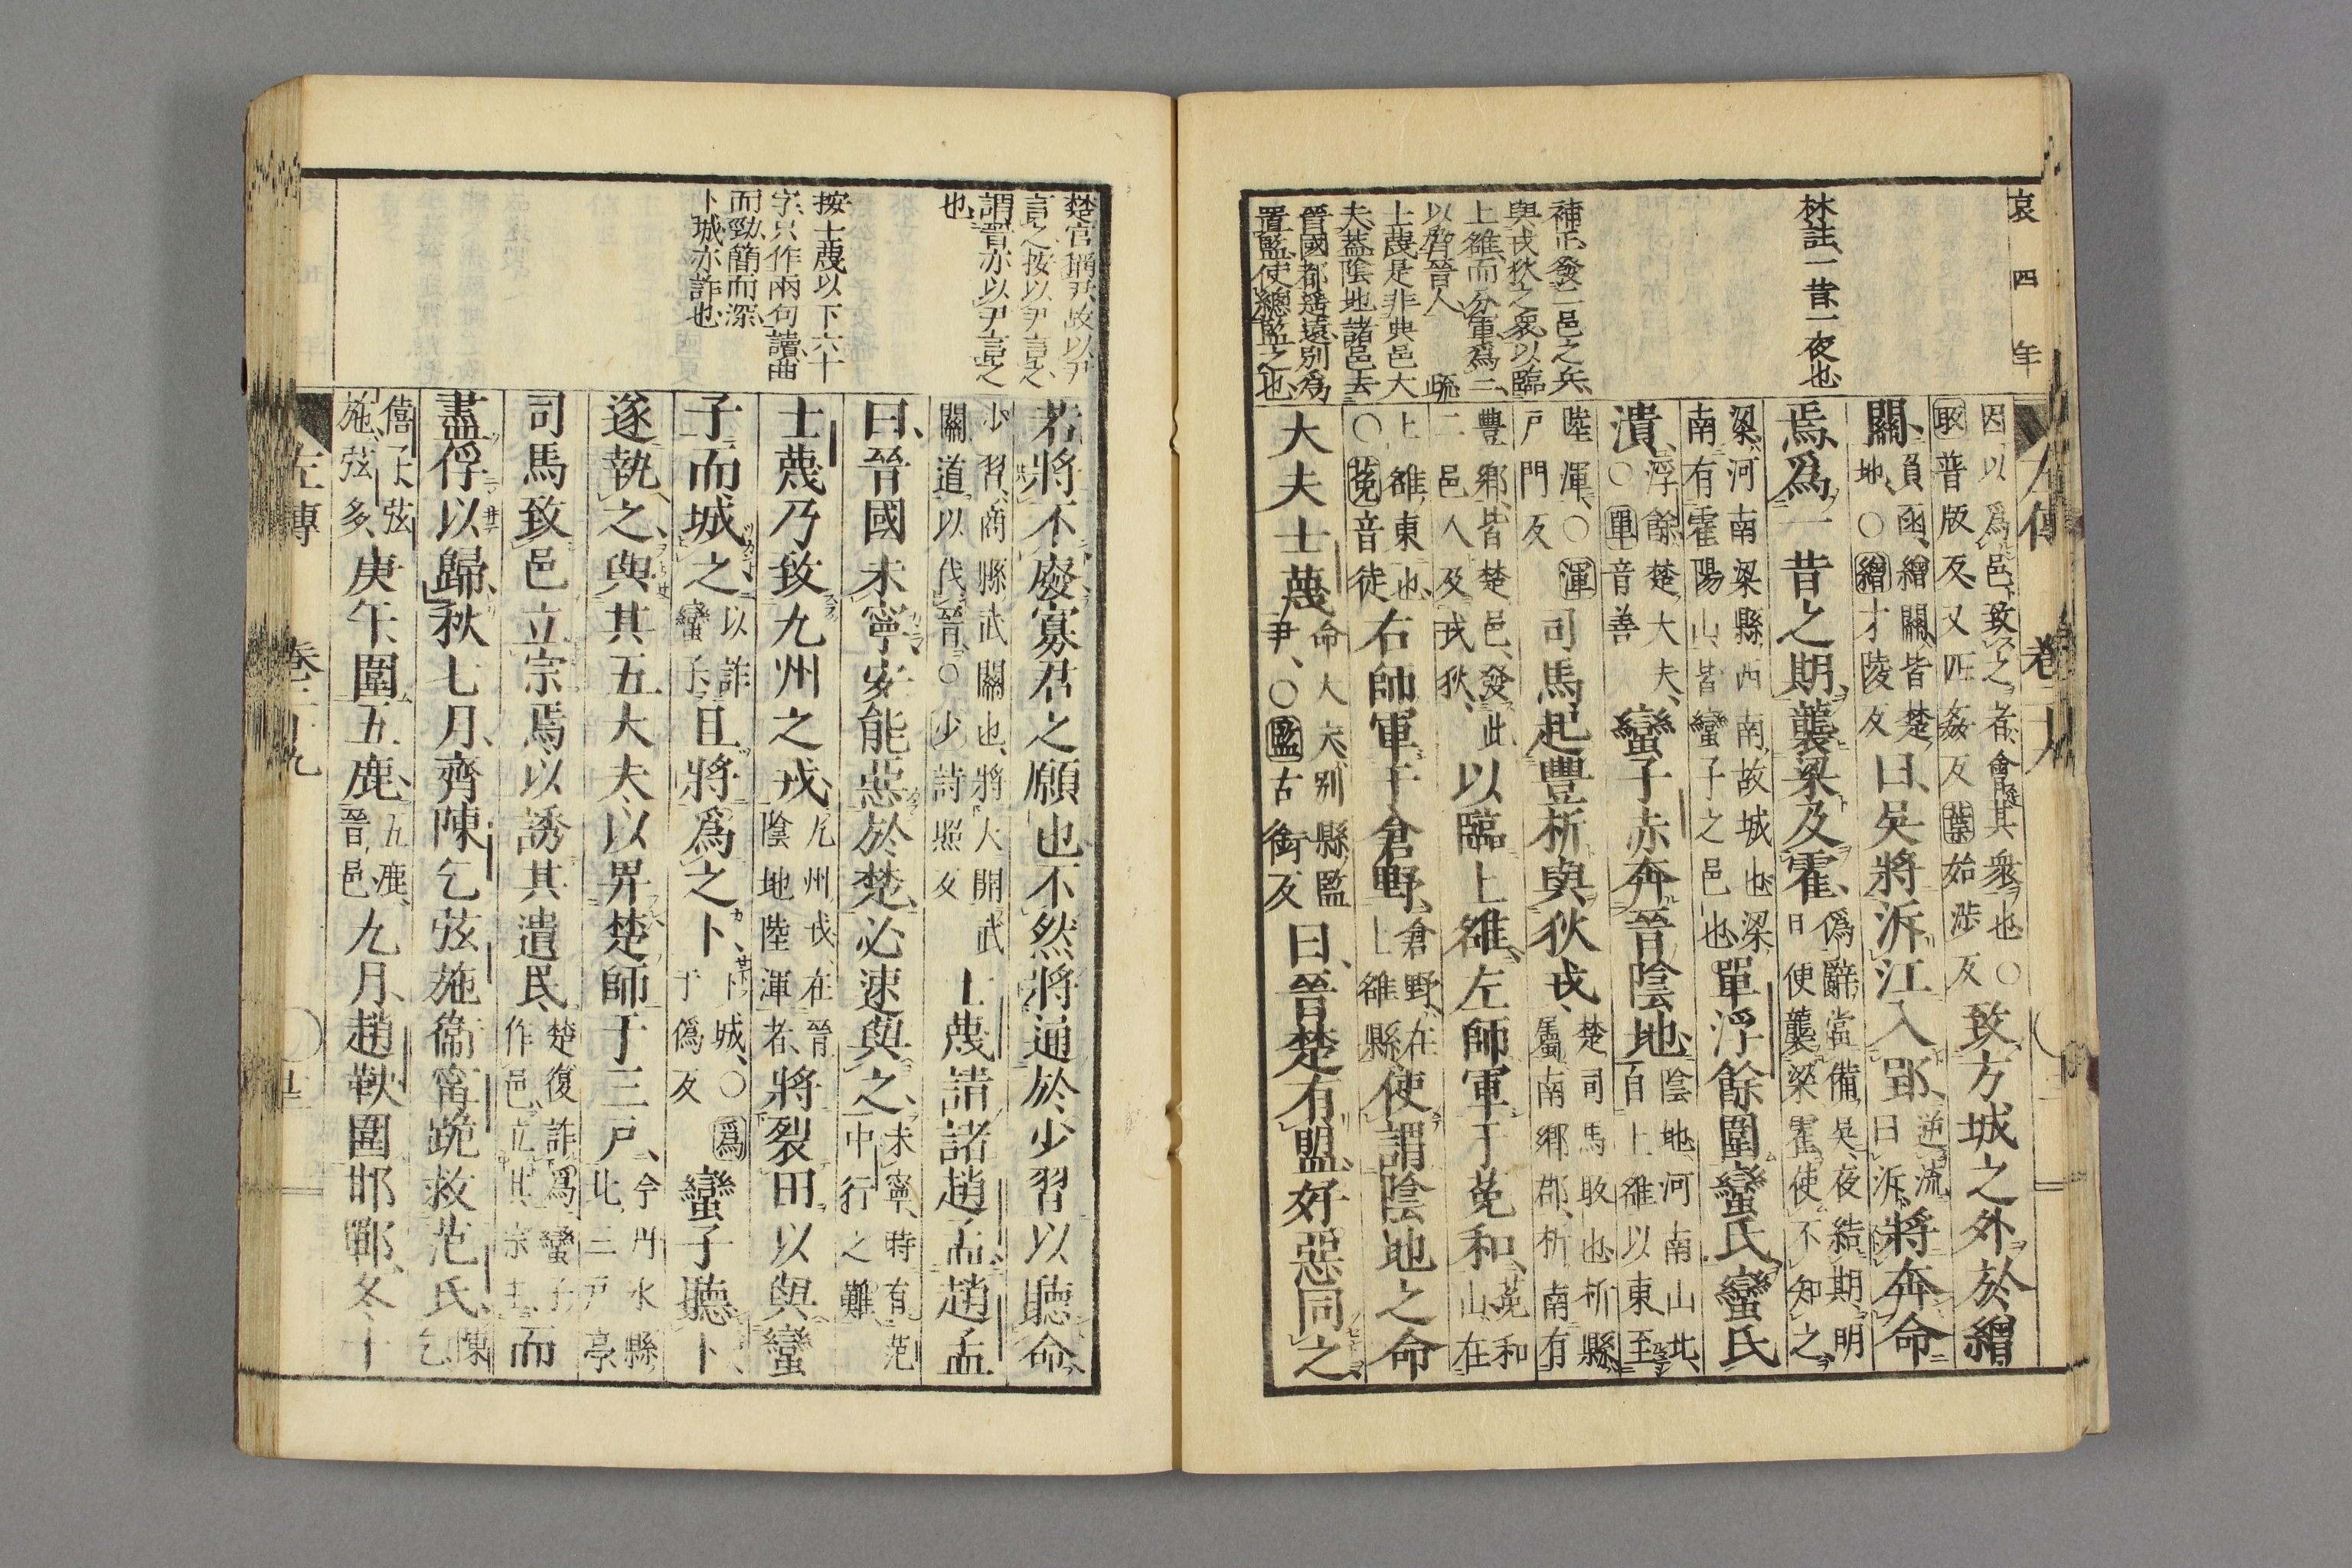 哀四年
林註、一昔、一夜也、
補正、發二邑之兵、
與戎狄之衆、以臨
上雒、而分軍爲二、
以脅晉人、 疏
士蔑是非典邑大
夫、蓋陰地諸邑去
晉國都遙遠、別爲
置監、使總監之也、
左傳 卷二十九
因以爲邑、致之者、會其衆也、○
敢普版反、又匹姦反、葉始涉反
致方城之外於繒
關、
負函、繒關、皆楚
地、○繒才陵反
曰、吳將泝江入郢、
逆流
曰泝、
將奔命
焉、爲一昔之期、襲梁及霍、
僞辭、當備吳、夜結期、明
日便襲梁霍、使不知之、
梁、河南梁縣西南、故城也、梁
南有霍陽山、皆蠻子之邑也、
單浮餘圍蠻氏、蠻氏
潰、
浮餘、楚大夫、
○單音善
蠻子赤奔晉陰地、
陰地、河南山北、
自上雒以東至
陸渾、○渾
戶門反
司馬起豐析與狄戎、
楚司馬販也、析縣
屬南鄉郡、析南有
豐鄉、皆楚邑、發此
二邑人及戎狄、
以臨上雒、左師軍于菟和、
菟和
山、在
上雒東也、
○菟音徒
右師軍于倉野、
倉野、在
上雒縣
使謂陰地之命
大夫士蔑
命大夫、別縣監
尹、○監古銜反
曰、晉楚有盟、好惡同之、
楚官稱尹、故以尹
言之、按以尹言之、
謂晉亦以尹言之
也、
按士蔑以下六十
字、只作兩句讀、曲
而勁、簡而深、
卜城亦詐也、
若將不廢寡君之願也、不然、將通於少習以聽命、
少習、商縣武關也、將大開武
關道、以伐晉、○少詩照反
士蔑請諸趙孟、趙孟
曰、晉國未寧、安能惡於楚、必速與之、
未寧、時有范
中行之難
士蔑乃致九州之戎、
九州戎、在晉
陰地陸渾者、
將裂田以與蠻
子而城之、
以詐
蠻子
且將爲之卜、
卜城、○爲
于僞反
蠻子聽卜、
遂執之、與其五大夫、以畀楚師于三戶、
今丹水縣
北三戶亭
司馬致邑立宗焉、以誘其遺民、
楚復詐爲蠻子
作邑、立其宗主、
而
盡俘以歸、秋七月、齊陳乞弦施衞甯跪救范氏、
陳
乞
僖子、弦
施、弦多、
庚午、圍五鹿、
五鹿、
晉邑
九月、趙鞅圍邯鄲、冬十
左傳 卷二十九